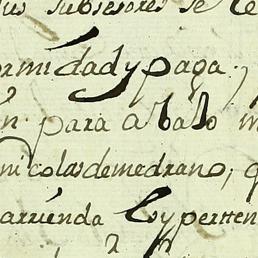 subsesores se
ormidad y paga
n para abalo in
nicolas de medrano, q
arrienda Ley perten